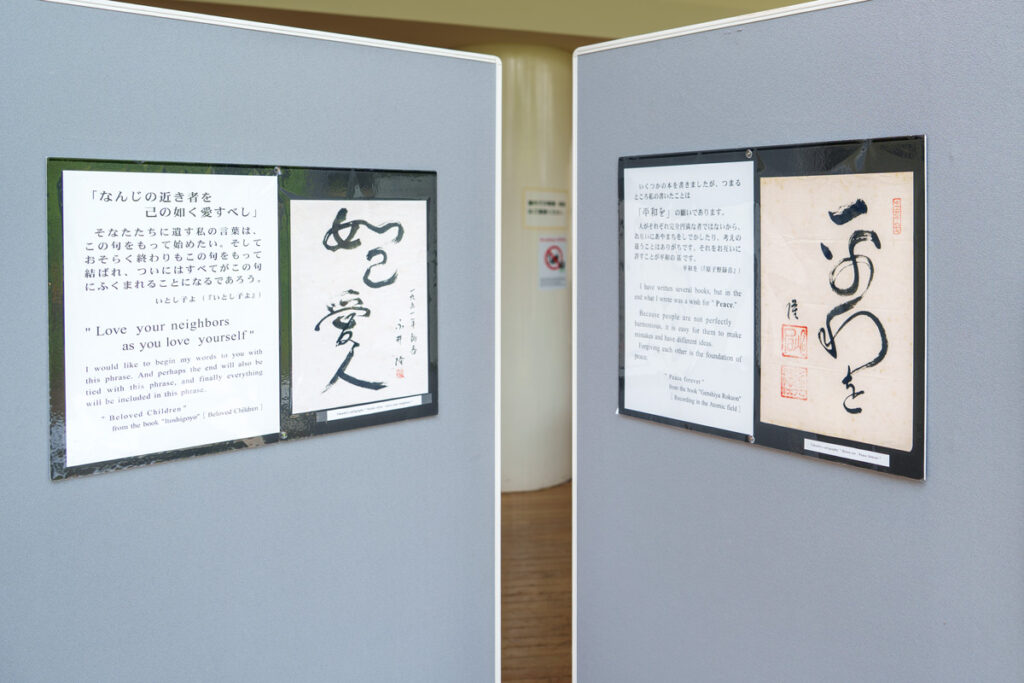 「なんじの近き者を
己の如く愛すべし」
そなたたちに遺す私の言葉は、
この句をもって始めたい。そして
おそらく終わりもこの句をもって
結ばれ、ついにはすべてがこの句
にふくまれることになるであろう。
いとし子よ（『いとし子よ』）
" Love your neighbors
as you love yourself "
I would like to begin my words to you with
this phrase. And perhaps the end will also be
tied with this phrase, and finally everything
will be included in this phrase.
" Beloved Children "
from the book "Itoshigoyo" [ Beloved Children ]
如己
愛人
一九五一年
永井隆
いくつかの本を書きましたが、つまる
ところ私の書いたことは
「平和を」の願いであります。
人がそれぞれ完り円満な者ではないから、
おたがいにあやまちをしでかしたり、考えの
違うことはありがちです。それをお互いに
許すことが平和の基です。
I have written several books, but in the
end what I wrote was a wish for " Peace."
Because people are not perfectly
harmonious, it is easy for them to make
mistakes and have different ideas.
Forgiving each other is the foundation of
peace.
" Peace forever "
from the book "Genshiya Rokuon"
[ Recording in the Atomic field ]
平和を
隆